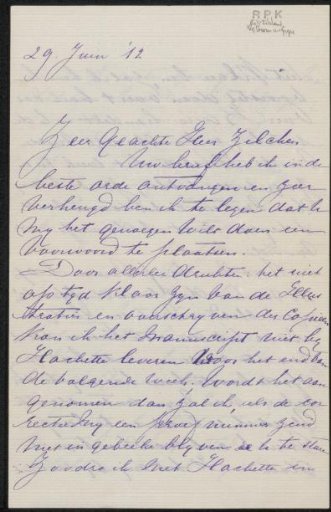 R P K
29 Juni '12
Zeer Geachte Heer Zilcken
Uw brief heb ik in de
beste orde ontvangen en zeer
verheugd ben ik te lezen dat U
my het genoegen wilt doen een
voorwoord te plaatsen.
Door allerlei drukte het niet
op tyd klaar zyn van de Illus
traties en overschryven der Copie
kan ik het Manuscript niet by
Hachette leveren voor het eind van
de volgende week. Wordt het aan
genomen dan zal ik, als de cor
rectie een proef nummer zend
niet in gebreke blyven U te
Zoodra ik met Hachette